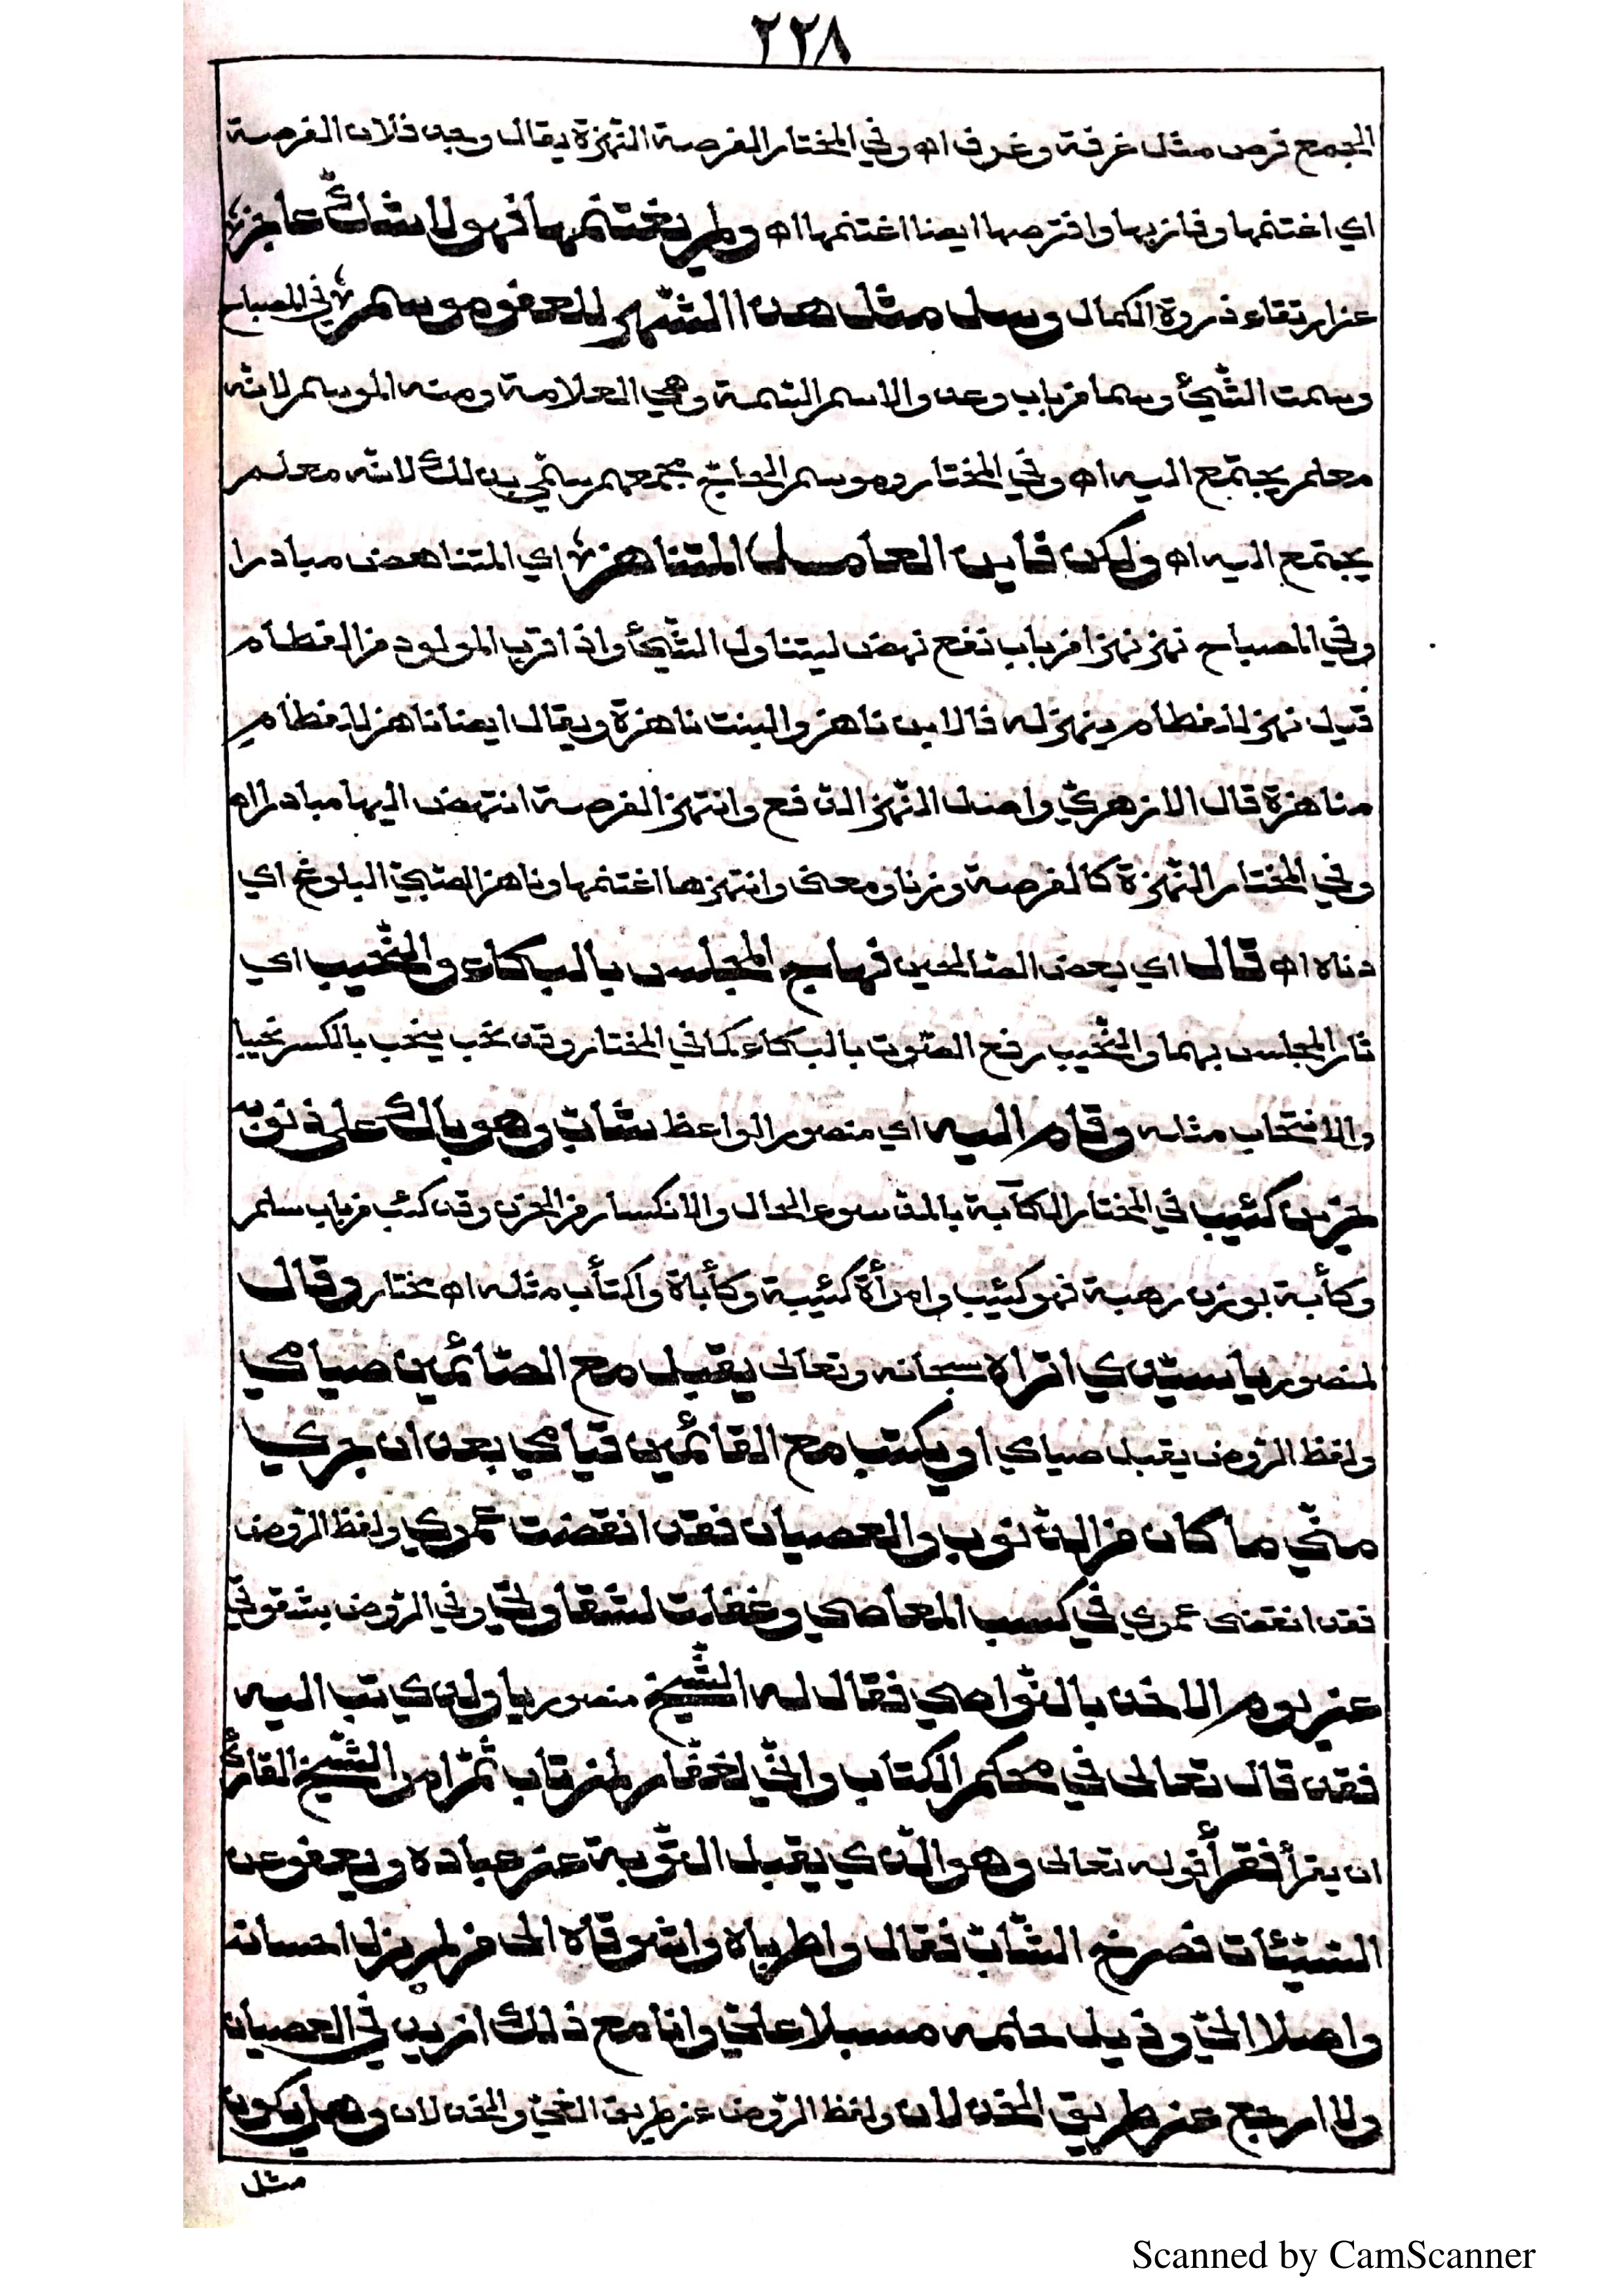 ٢٢٨
الجمع فرص مثل غرفة وغرف اه وفي المختار الفرصة النّهزة يقال وجد فلان الفرصة
اي اغتنمها وفاز بها وافترصها ايضا اغتنمها اه ولم يغتنمها فهو لا شكّ عاجز
عن ارتقاء ذروة الكمال وسل مثل هذا الشّهر للعفو موسم في المصباح
وسمت الشّيئ وسما من باب وعد والاسم السّمة وهي العلامة ومنه الموسم لانّه
معلم يجتمع اليه اه وفي المختار وموسم الحاجّ مجمعهم سمّي بذلك لانّه معلم
يجتمع اليه اه ولكن فاين العامل المتناهز اي المتناهض مبادرا
وفي المصباح نهز نهزا من باب نفع نهض ليتناول الشّيئ واذا قرب المولود من الفطام
قيل نهز للفطام ينهز له فالابن ناهز والبنت ناهزة ويقال ايضا ناهز للفطام
مناهزة قال الازهريّ واصل النّهز الدّفع وانتهز الفرصة انتهض اليها مبادرا اه
وفي المختار النّهزة كالفرصة وزنا ومعنى وانتهزها اغتنمها وناهز الصّبيّ البلوغ اي
دناه اه قال اي بعض الصّالحين فهاج المجلس بالبكاء والنّحيب اي
ثار المجلس بهما والنّحيب رفع الصّوت بالبكاء كما في المختار وقد نحب ينحب بالكسر نحيبا
والانتحاب مثله وقام اليه اي منصور الواعظ شابّ وهو باك على ذنوبه
حزين كئيب في المختار الكآبة بالمدّ سوء الحال والانكسار من الحزن وقد كئب من باب سلم
وكأبة بوزن رهبة فهو كئيب وامرأة كئيبة وكأباة واكتأب مثله اه مختار وقال
لمنصور يا سيّدي اتراه سبحانه وتعالى يقبل مع الصّائمين صيامي
ولفظ الرّوض يقبل صيامي او يكتب مع القائمين قيامي بعد ان جرى
منّي ما كان من الذّنوب والعصيان فقد انقضت عمري ولفظ الرّوض
فقد انقضى عمري في كسب المعاصي وغفلت لشقاوتي وفي الرّوض بشقوتي
عن يوم الاخذ بالنّواصي فقال له الشّيخ منصور يا ولدي تب اليه
فقد قال تعالى في محكم الكتاب وانّي لغفّار لمن تاب ثمّ امر الشّيخ القارئ
ان يقرأ فقرأ قوله تعالى وهو الّذي يقبل التّوبة عن عباده ويعفو عن
السّيّئات فصرخ الشّابّ فقال واطرباه واشوقاه الى من لم يزل احسانه
واصلا اليّ وذيل حلمه مسبلا عليّ وانا مع ذلك ازيد في العصيان
ولا ارجع عن طريق الخذلان ولفظ الرّوض عن طريق الغيّ والخذلان وهل يكون
مثل
Scanned by CamScanner